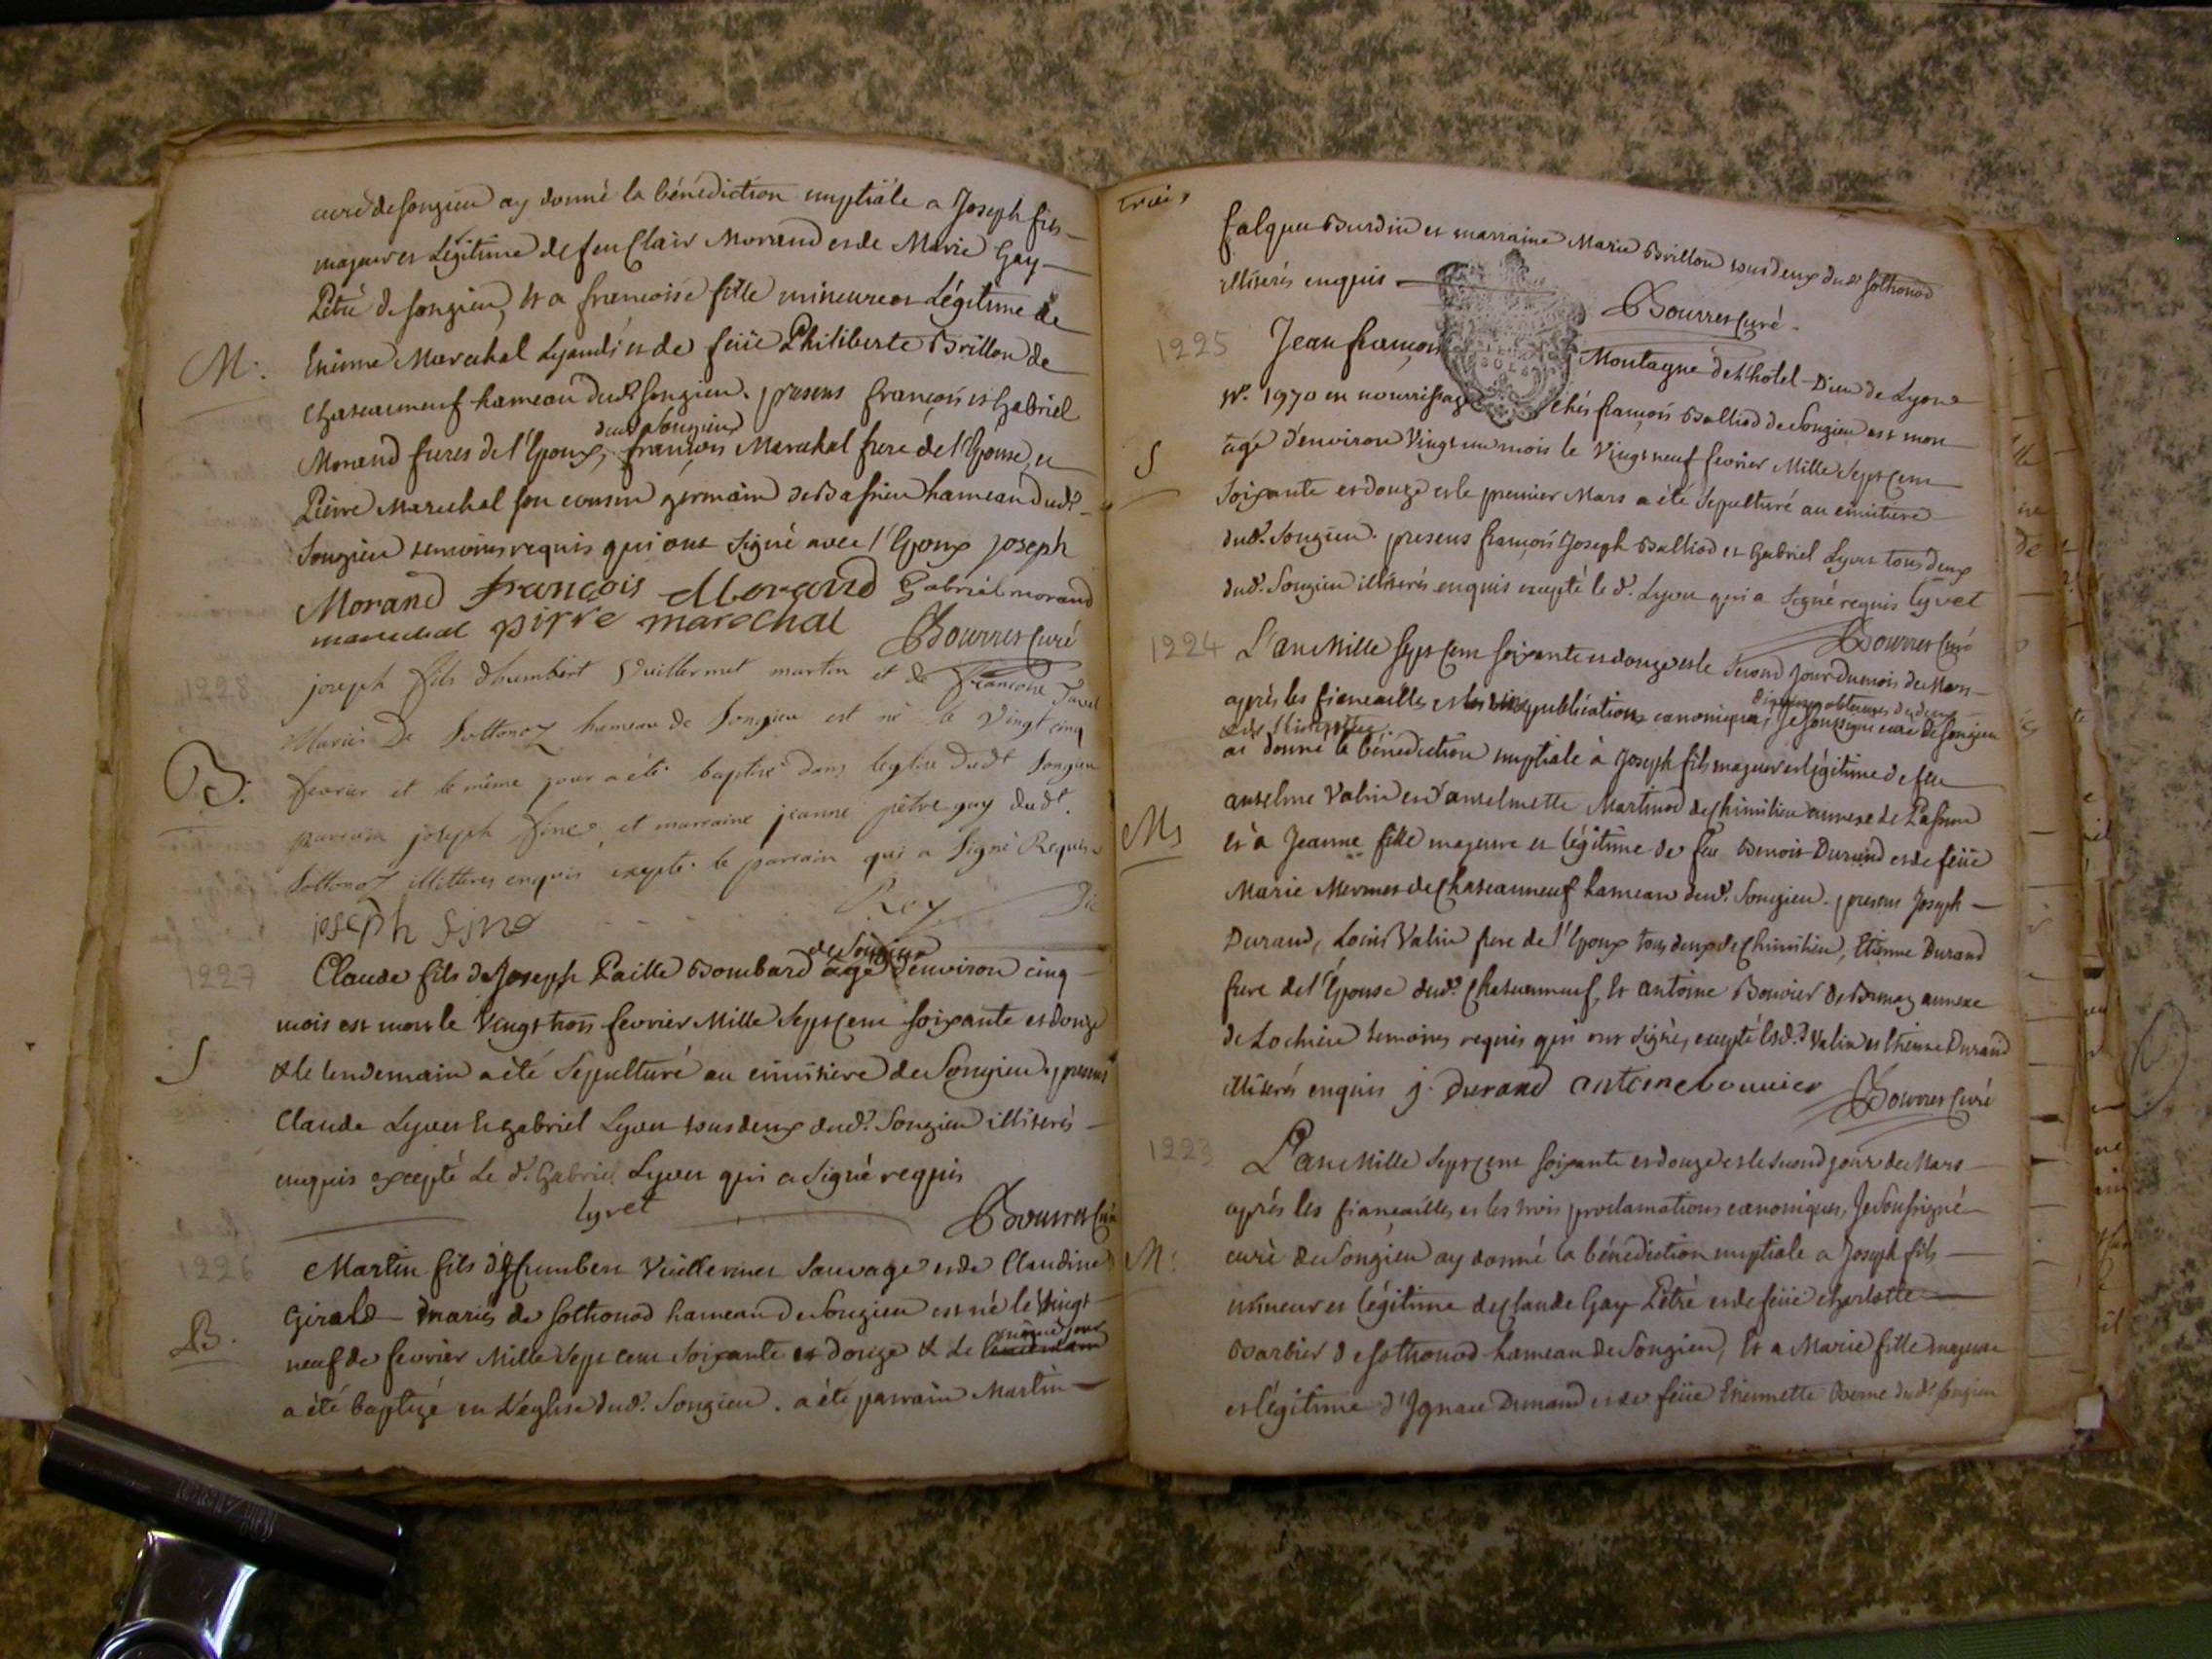 curé de Songieu ay donné la bénédiction nuptiale a Joseph fils
majeur et Légitime de feu Clair Morand et de Marie Gay
Pétré de Songieu, et a francoise fille mineure et Légitime de
M. Etienne Marechal Lyandi et de feüe Philiberte Brillon de
Chateauneuf hameau dud. Songieu. presens françois et Gabriel
dud. Songieu
Morand freres de l'Epoux, françois Marechal frere de l'Epouse, et
Pierre Marechal son cousin germain de hameau dud.
Songieu temoins requis qui ont signé avec l'Epoux joseph
Morand françois Morand Gabriel morand
marechal pirre marechal Bourret Curé
1228
joseph fils dhumbert Vuillermet martin et de francoise
Mariés De Sottonoz hameau de Songieu est né le Vingt cinq
B. fevrier et le même jour a été baptisé dans leglise dudt Songieu
parrain joseph fine et marraine jeanne pétre gay dudt.
Sottonoz illitteres enquis excepté le parrain qui a Signé Requis
joseph fine Rey
1227
de Songieu
Claude fils de Joseph Paille Bombard agé d'environ cinq
mois est mort le vingt trois fevrier Mille Sept Cent soixante et douze
S & le lendemain a été Sepulturé au cimitiere de Songieu. presens
Claude Lyvet et gabriel Lyvet tous deux dud. Songieu illiterés
enquis excepté Le d. Gabriel Lyvet qui a signé requis
lyvet Bourret Curé
1226
Martin fils d'humbert Vuillermet Sauvage et de Claudine
Girald mariés de Sothonod hameau de Songieu est né le vingt
même jour
B. neuf de fevrier Mille Sept cent soixante et douze & le lendemain
a été baptizé en L'église dud. Songieu. a été parrain Martin
falque Burdin et marraine Marie Brillon tous deux dud. Sothonod
illiterés enquis
Bourret Curé.
1225
Jean françois Montagne de L'hotel-Dieu de Lyon
N°. 1970 en nourrissage chés françois Balliod de Songieu est mort
S agé d'environ Vingt un mois le Vingt neuf fevrier Mille Sept Cent
Soixante et douze et le premier Mars a été Sepulturé au cimitiere
dud. Songieu. presens françois Joseph Balliod et Gabriel Lyvet tous deux
dud. Songieu illiterés enquis excepté le d. Lyvet qui a signé requis lyvet
Bourret Curé
1224
L'an Mille Sept Cent soixante et douze et le Second jour du mois de Mars
aprés les fiancailles publication canonique, Je soussigné curé de Songieu
ai donné la bénédiction nuptiale à Joseph fils majeur et légitime de feu
anselme Valin et d'anselmette Martinod de Chimilieu annexe de
M et à Jeanne fille majeure et légitime de feu Benoit Durand et de feüe
Marie Mermet de Chateauneuf hameau dud. Songieu. presens Joseph
Durand, Louis Valin frere de l'Epoux tous deux de Chimilieu, Etienne Durand
frere de l'Epouse dud. Chateauneuf, et antoine Bouvier de annexe
de Lochieu temoins requis qui ont signés, excepté lesd. Valin et Etienne Durand
illiterés enquis j. Durand antoine bouvier Bourret Curé
1223
L'an Mille Sept Cent soixante et douze et le second jour de Mars
aprés les fiancailles et les trois proclamations canoniques, Je Soussigné
M. curé de Songieu ay donné la bénédiction nuptiale a Joseph fils
mineur et légitime de Claude Gay Pétré et de feüe charlotte
Barbier de Sothonod hameau de Songieu, et a Marie fille majeure
et légitime d'Ignace Dumand et de feüe Etiennette Berne dud. Songieu